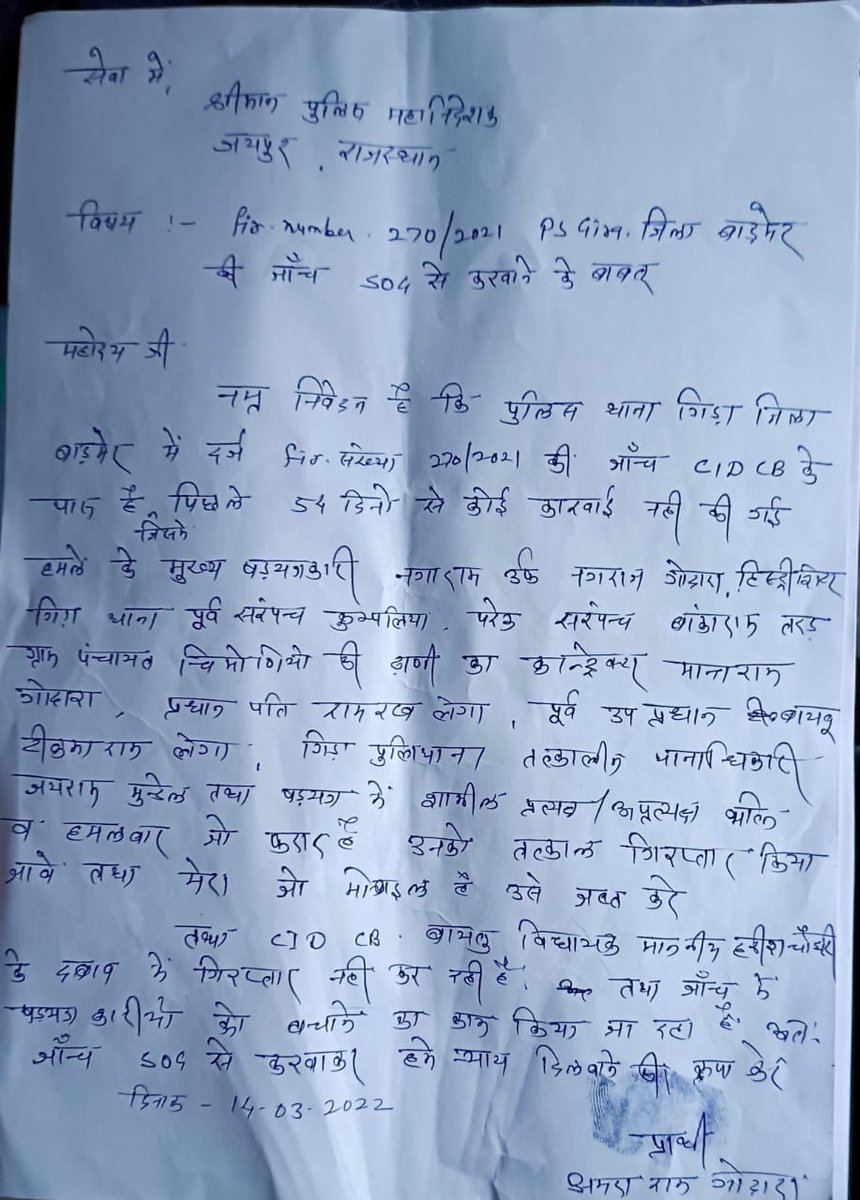 सेवा में,
श्रीमान पुलिस महानिदेशक
जयपुर , राजस्थान
विषय :- fir. number. 270/2021 PS Gira. जिला बाड़मेर
की जाँच SOG से करवाने के बाबत्
महोदय जी
नम्र निवेदन है कि पुलिस थाना गिड़ा जिला
बाड़मेर में दर्ज fir. संख्या 270/2021 की जाँच CID CB के
पास है, पिछले 54 दिनो से कोई कारवाई नही की गई
जिसमे
हमले के मुख्य षड़यत्रकारी नगाराम उर्फ नगराज गोदारा, हिस्ट्रीशिटर
गिड़ा थाना पूर्व सरंपन्च कुम्पलिया, परेऊ सरंपन्च बांकाराम तरड़
ग्राम पंचायत चिमोणियो की ढाणी का कान्ट्रेक्टर मानाराम
गोदारा , प्रधान पति रामरख लेगा , पूर्व उप प्रधान बायतू
टीकमाराम लेगा , गिड़ा पुलिथाना तत्कालीन थानाधिकारी
जयराम मुन्डेल तथा षड़यत्र में शामील प्रत्यक्ष/अप्रत्यक्ष
व हमलवार जो फरार है उनको तत्काल गिरप्तार किया
जावे तथा मेरा जो मोबाइल है उसे जब्त करे
तथा CID CB. बायतु विधायक माननीय हरीश चौधरी
के दबाव में गिरप्तार नही कर रही है. तथा जाँच में
षड़यत्र कारीयो को बचाने का काम किया जा रहा है अतः
जाँच SOG से करवाकर हमे न्याय दिलवाने की कृपा करे
दिनाक - 14-03-2022
प्रार्थी
अमरा राम गोदारा